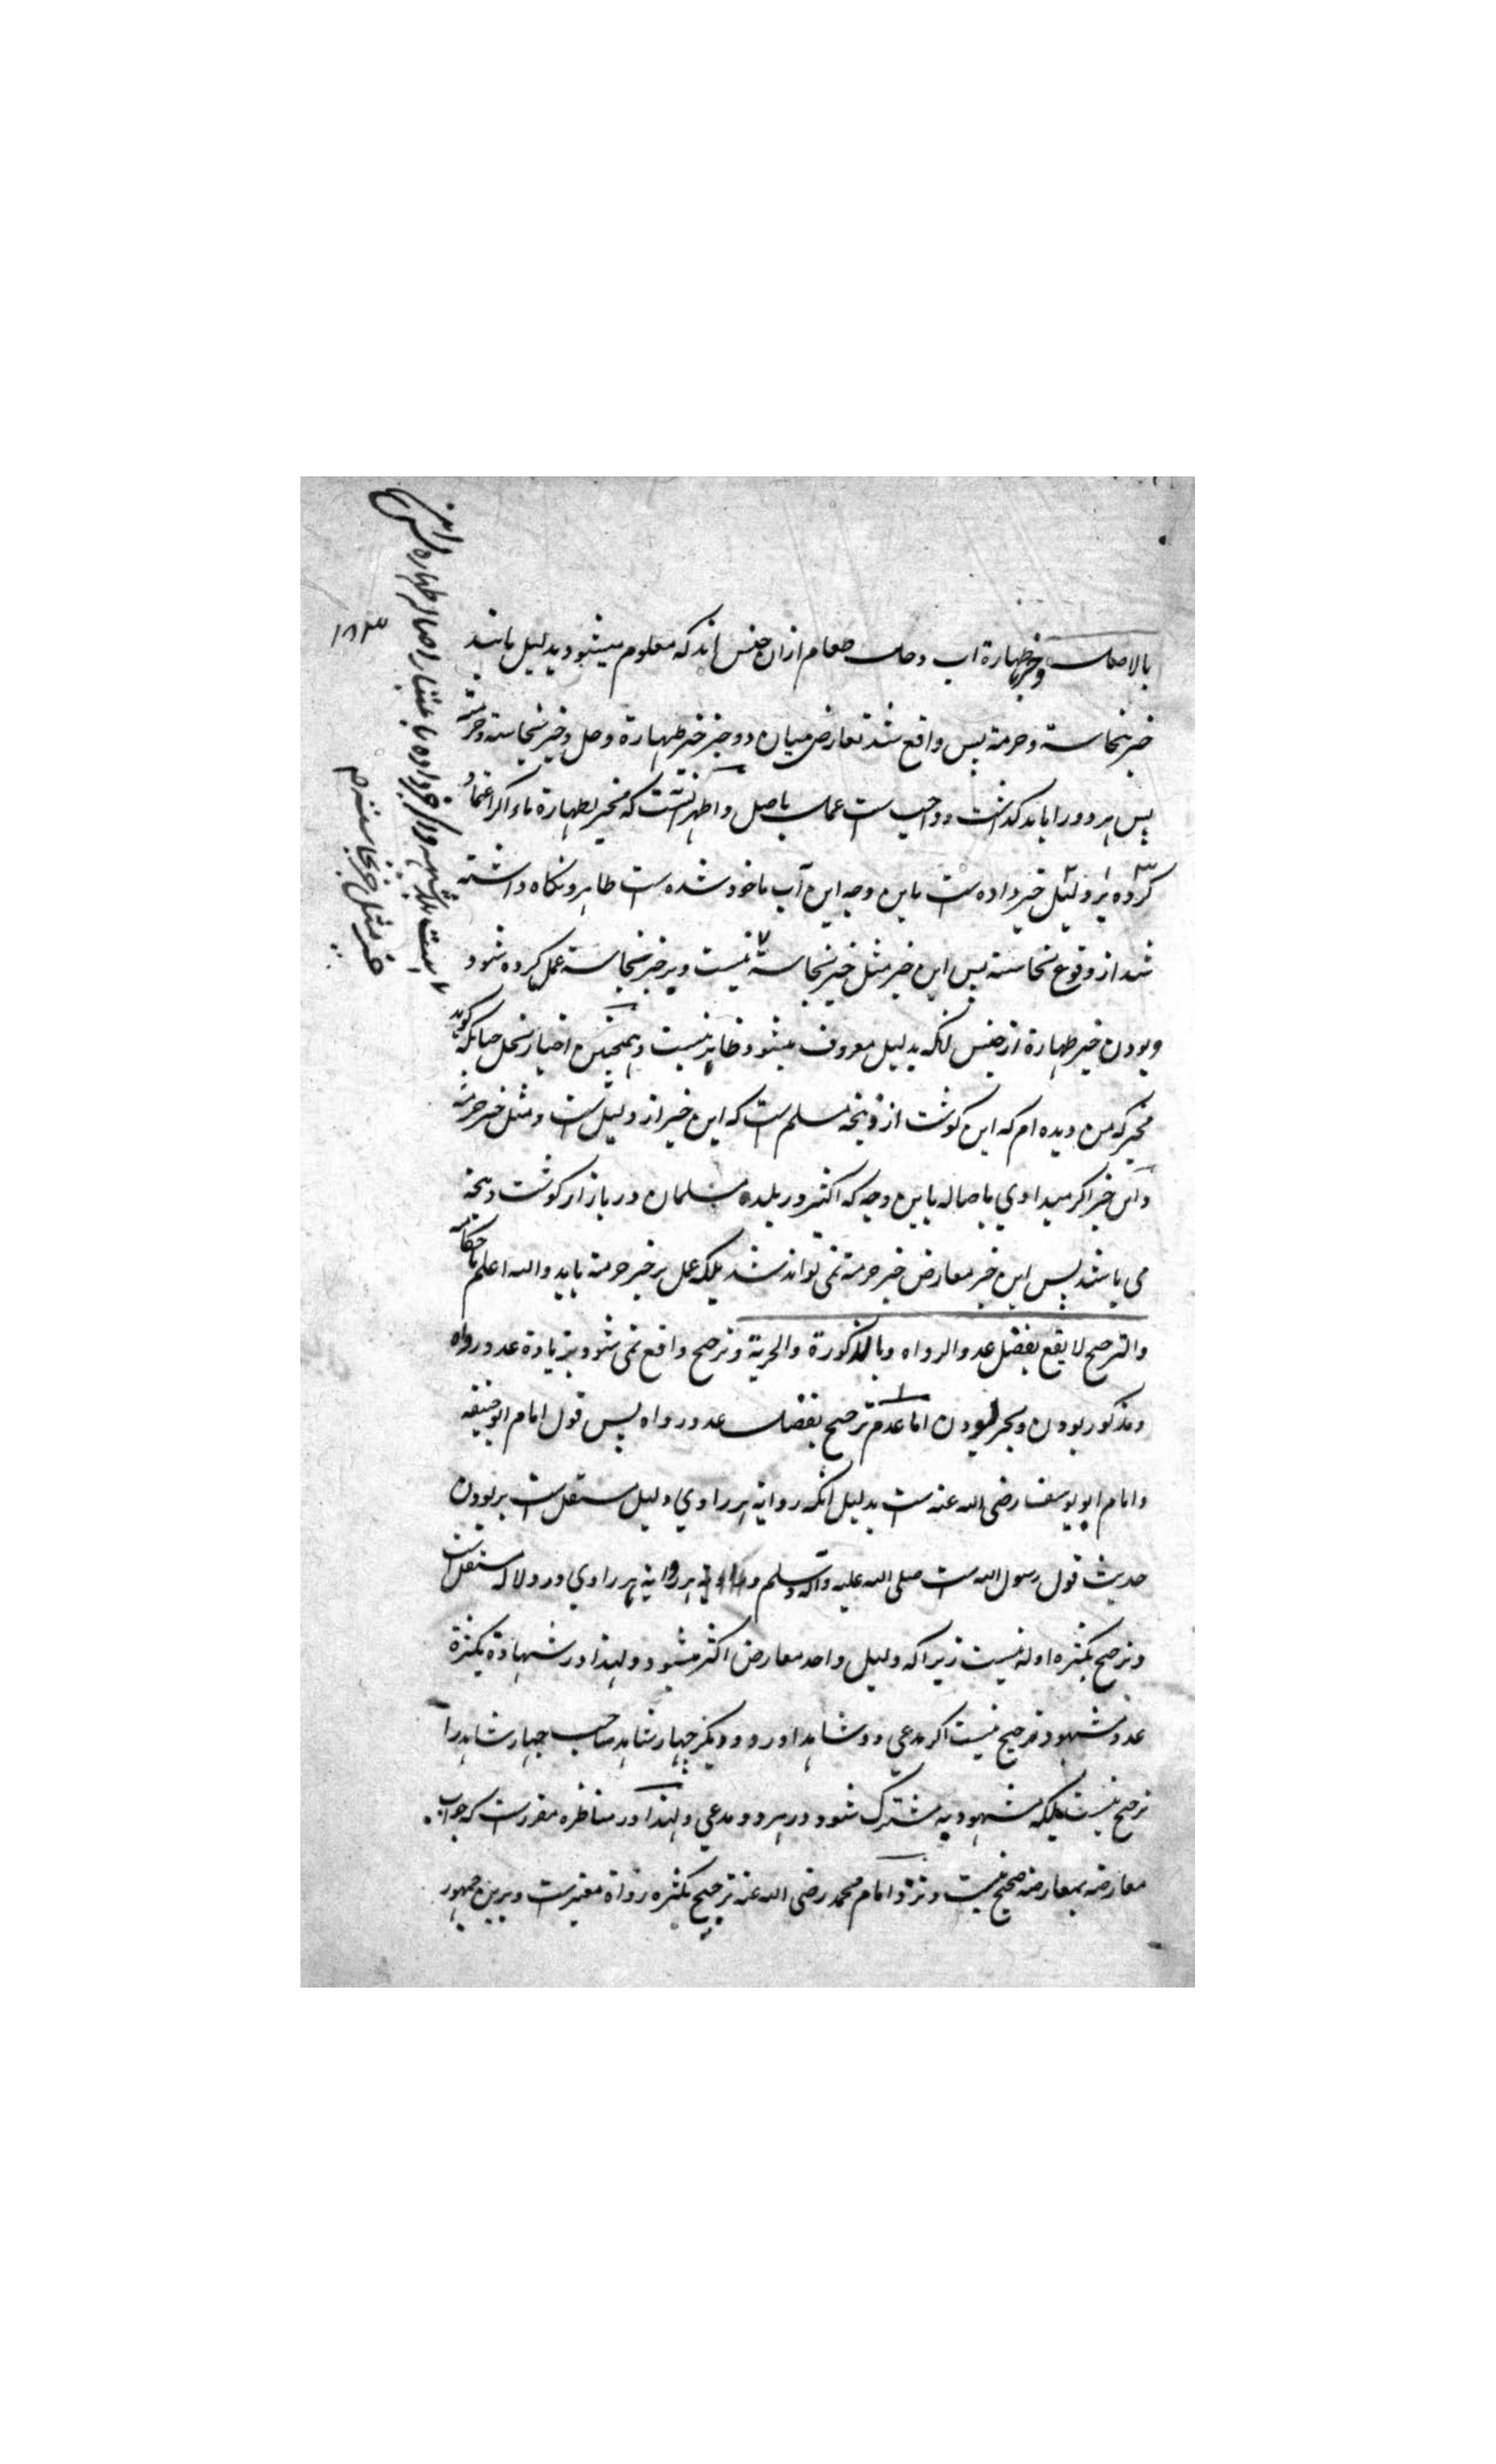 بالاصل وخبر طهارة اب وحل طعام ازان جنس اند که معلوم میشود بدلیل مانند
خبر نجاسة وحرمة پس واقع شد تعارض میان دو خبر خبر طهارة وحل وخبر نجاسة وحرمة
پس هر دو را باید گذاشت وواجب ست عمل باصل واظهر انست که مخبر بطهارة ماء اکر اعتماد
کرده بر دلیل خبر داده ست باین وجه این آب ماخود شده ست طاهر ونکاه داشته
شد از وقوع نجاسة پس این خبر مثل خبر نجاسة نیست وبر خبر نجاسة عمل کرده شود
وبودن خبر طهارة از جنس انکه بدلیل معروف میشود ظاهر نیست وهمچنین اخبار بحل چنانکه کوید
مخبر که من دیده ام که این کوشت از ذبیحه مسلم ست که این خبر از دلیل ست ومثل خبر حرمة
واین خبر اکر میدادی باصاله باین وجه که اکثر در بلده مسلمان در بازار کوشت ذبیحه
می باشد پس این خبر معارض خبر حرمة نمی تواند شد بلکه عمل بر خبر حرمة باید والله اعلم باحکامه
والترجیح لا یقع بفضل عدد الرواه وبالذکورة والحریة وترجیح واقع نمی شود بزیادة عدد رواه
ومذکور بودن وبحر بودن اما عدم ترجیح بفضل عدد رواه پس قول امام ابو حنیفه
وامام ابو یوسف رضی الله عنه ست بدلیل انکه روایة هر راوي دلیل مستقل ست بر بودن
حدیث قول رسول الله ست صلی الله علیه وآله وسلم و روایة هر راوي در دلاله مستقل ست
وترجیح بکثره ادله نیست زیراکه دلیل واحد معارض اکثر میشود ولهذا در شهادة بکثرة
عدد شهود ترجیح نیست اکر مدعي دو شاهد اورد ودیکر چهار شاهد صاحب چهار شاهد را
ترجیح نیست بلکه مشهود به مشترک شود در هر دو مدعي ولهذا در مناظره مقررست که جواب
معارضه بمعارضه صحیح نیست ونزد امام محمد رضی الله عنه ترجیح بکثره رواة معتبرست وبرین جمهور
۱۸۳
واکر خبر داده باعتبار اصاله طهاره پس این
خبر مثل خبر نجاسة